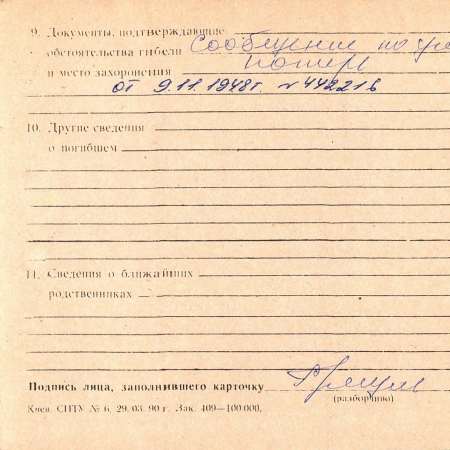 9. Документы, подтверждающие
обстоятельства гибели Сообщение по
и место захоронения
от 9.11.1948г. № 442216
10. Другие сведения
о погибшем
11. Сведения о ближайших
родственниках
Подпись лица, заполнившего карточку
(разборчиво)
Киев. СПТУ № 6, 29. 03. 90 г. Зак. 409—100 000.